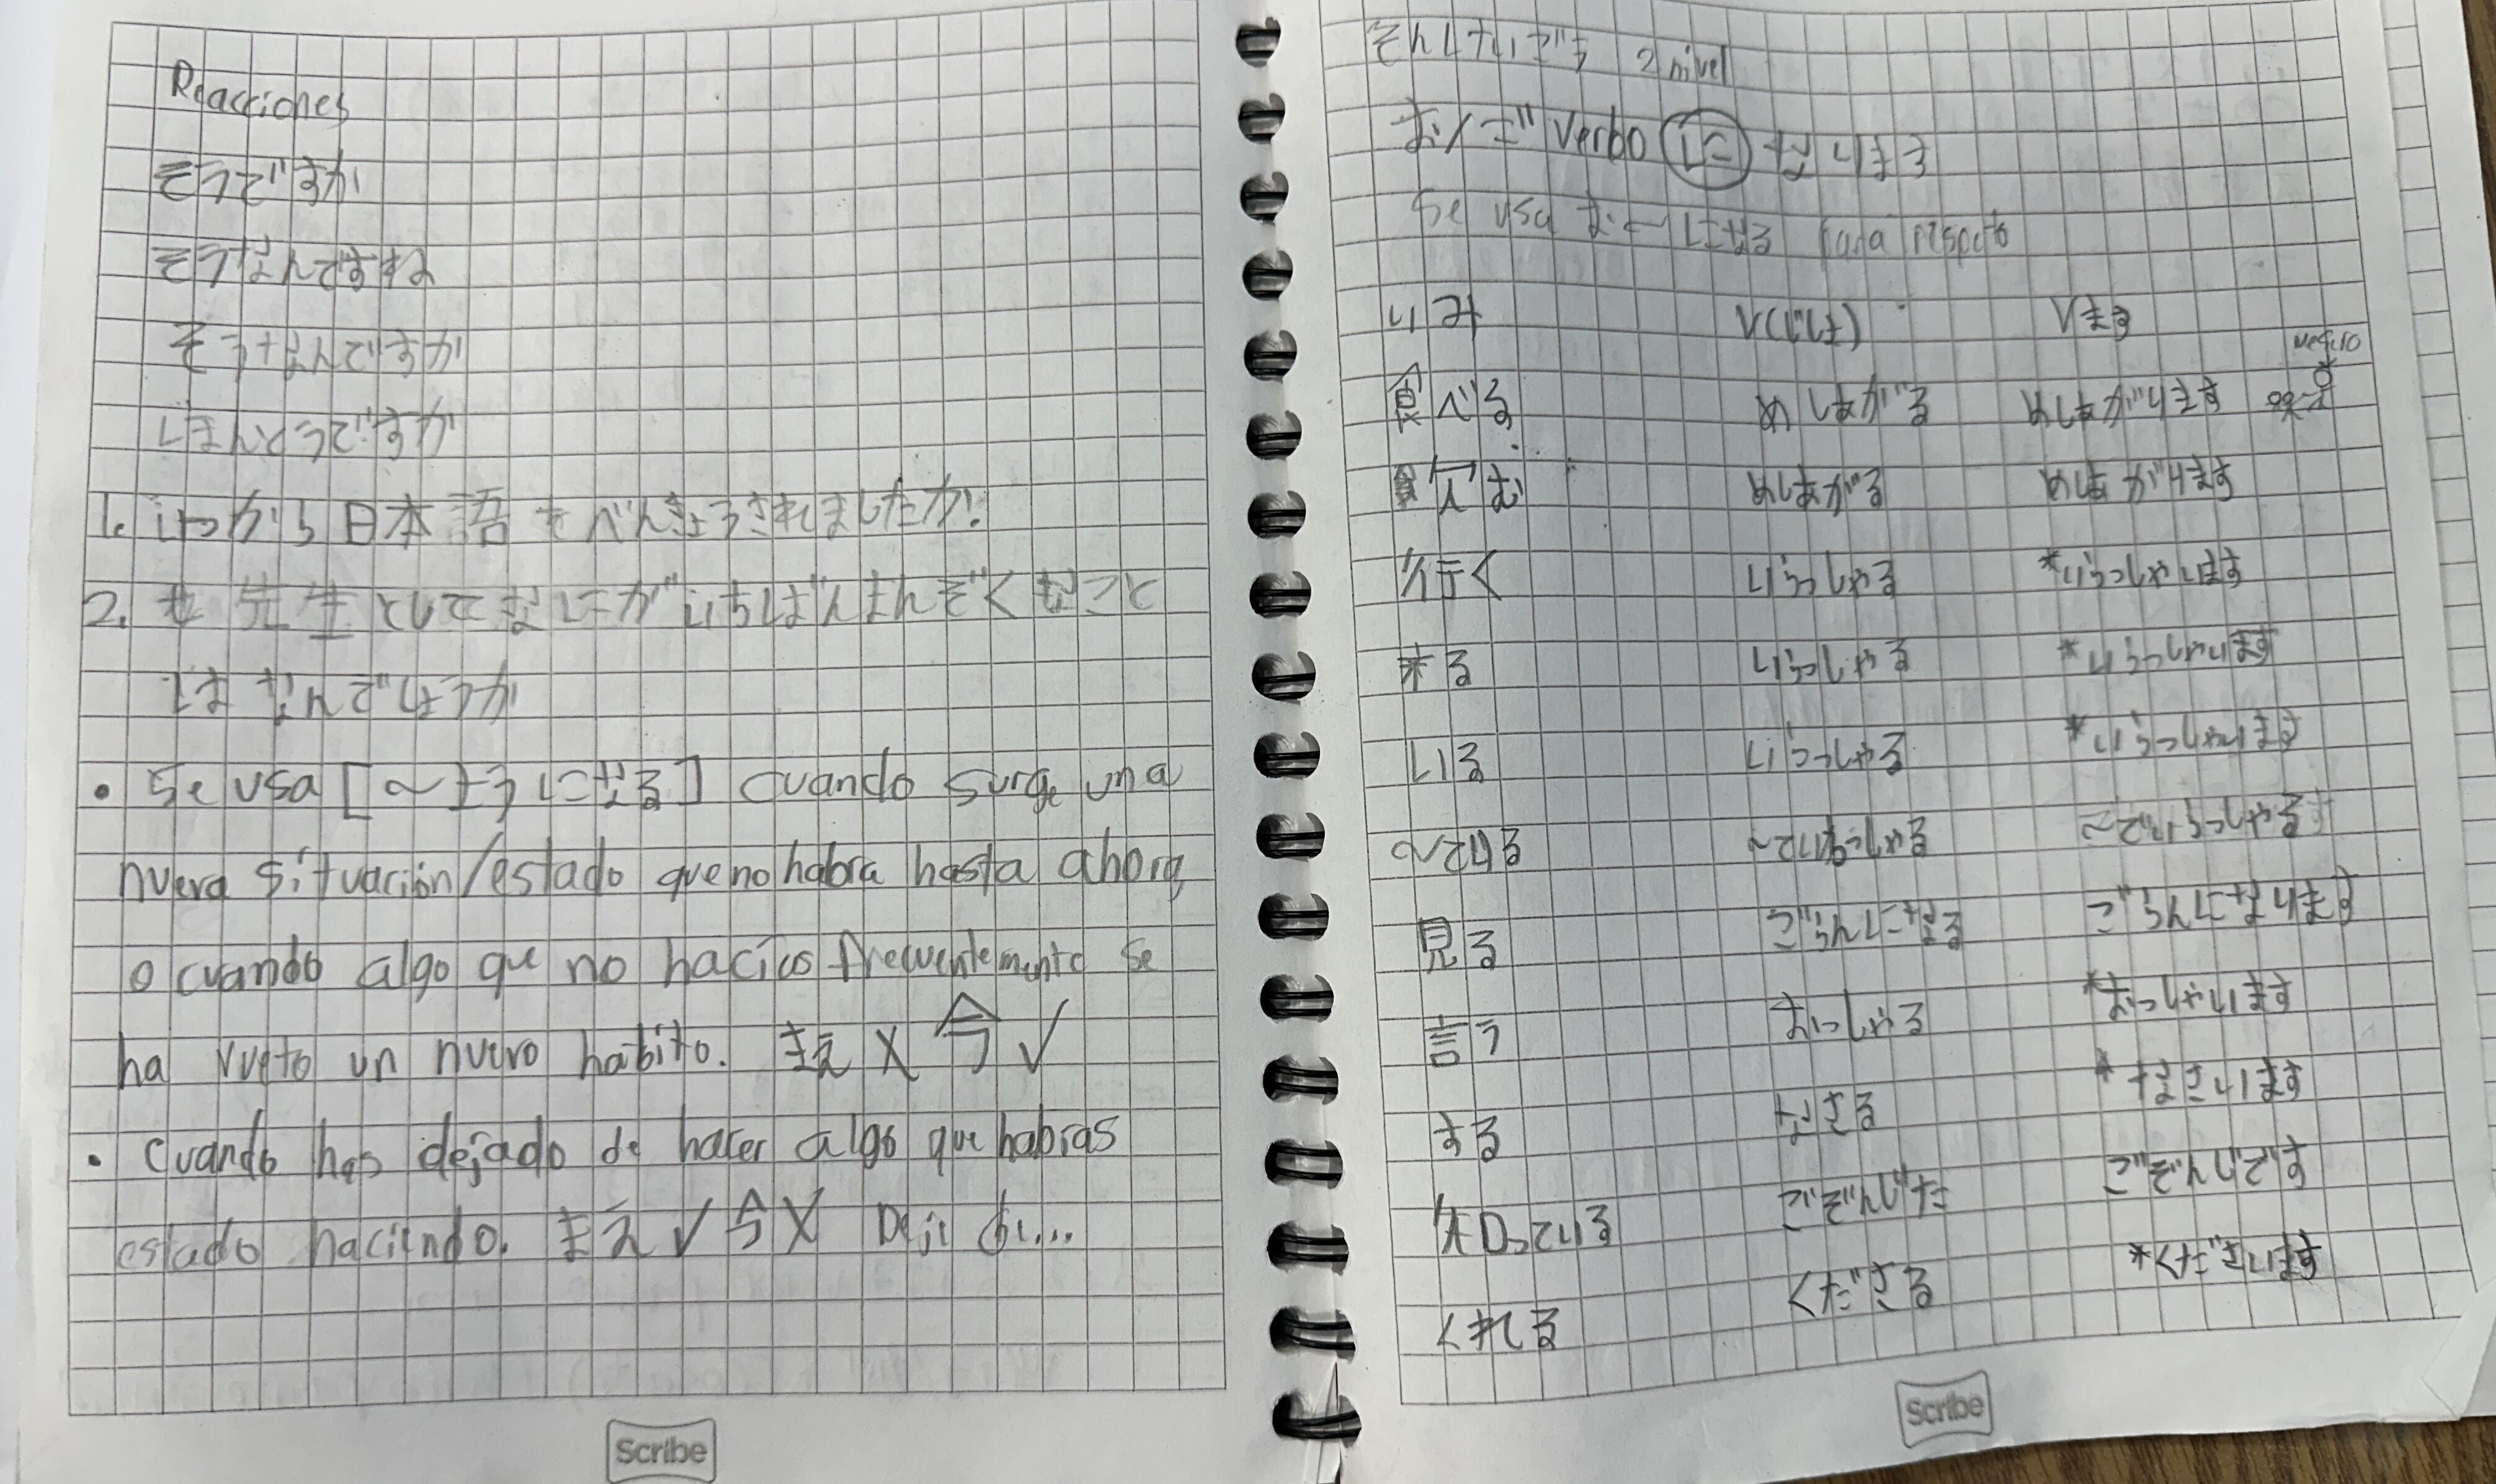 Reacciones
そうですか
そうなんですね
そうなんですか
ほんとうですか
1. いつから日本語をべんきょうされましたか。
2. 先生としてなにがいちばんまんぞくなこと
はなんでしょうか
• Se usa [~ようになる] cuando surge una
nueva situación/estado que no habia hasta ahora
o cuando algo que no hacías frecuentemente se
ha vuelto un nuevo habito. まえ X 今 ✓
• Cuando has dejado de hacer algo que habias
estado haciendo. まえ ✓ 今 X Deje de...
そんけいご 2 nivel
お/ご Verbo に なります
Se usa お~になる para respeto
いみ V(じしょ) Vます
negro
食べる めしあがる めしあがります
飲む めしあがる めしあがります
行く いらっしゃる *いらっしゃいます
来る いらっしゃる *いらっしゃいます
いる いらっしゃる *いらっしゃいます
~ている ~ていらっしゃる ~ていらっしゃる
見る ごらんになる ごらんになります
言う おっしゃる *おっしゃいます
する なさる *なさいます
知っている ごぞんじだ ごぞんじです
くれる くださる *くださいます
Scribe
Scribe